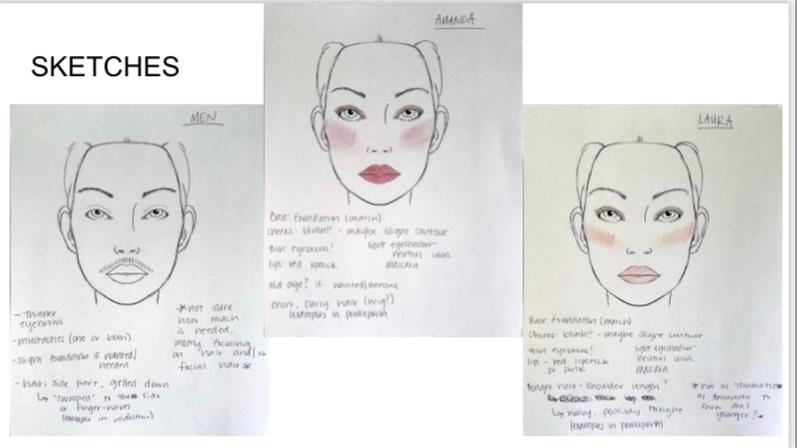 SKETCHES
MEN
- thinner
eyebrows
- mustaches (one or both)
- slight foundation if wanted/
needed
- hair: side part, gelled down
↳ "swooped" to the side
or finger-waves
(examples in
*not sure
how much
is needed.
mostly focusing
on hair and/or
facial hair*
AMANDA
Base: foundation (match)
cheeks: blush!! - maybe slight contour
thin eyebrows!
lips: red lipstick
light eyeshadow-
neutral
mascara
old age? if wanted/needed
short, curly hair (wig?)
(examples in powerpoint)
LAURA
Base: foundation (match)
cheeks: blush!! - maybe slight contour
thin eyebrows!
lips - red lipstick
or pink
light eyeshadow-
neutral
mascara
longer hair - shoulder length?
↳ wavy, possibly straight
(examples in powerpoint)
*not as "dramatic"
as Amanda to
show she's
younger?*